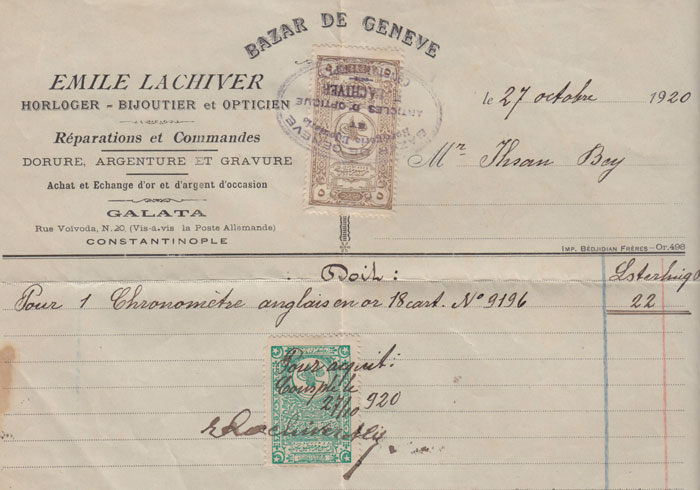 BAZAR DE GENÈVE
EMILE LACHIVER
HORLOGER - BIJOUTIER et OPTICIEN
Réparations et Commandes
DORURE, ARGENTURE ET GRAVURE
Achat et Echange d'or et d'argent d'occasion
GALATA
Rue Voivoda, N. 20. (Vis-à-vis la Poste Allemande)
CONSTANTINOPLE
le 27 octobre 1920
Mr Ihsan Bey
IMP. BÉDJIDIAN FRÈRES-Or. 498
LACHIVER
ARTICLES D'OPTIQUE
GENÈVE
٥ ٥
Doit:
Pour 1 Chronomètre anglais en or 18 cart. Nº 9196
22
Pour acquit:
Constple le
27/10 920